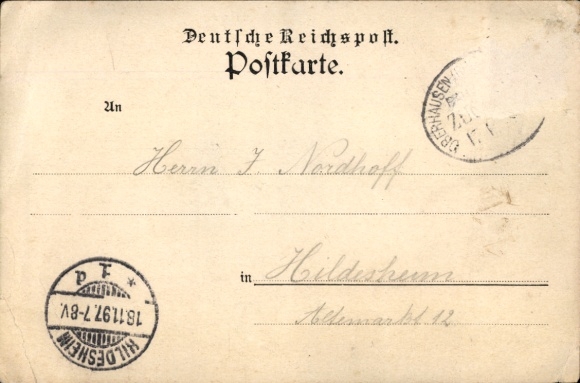 Deutsche Reichspost.
Postkarte.
OBERHAUSEN
ZUG
17
An
Herrn J. Nordhoff
in Hildesheim
Altemarkt 12
HILDESHEIM
18.11.97.7-8V.
* 1 d